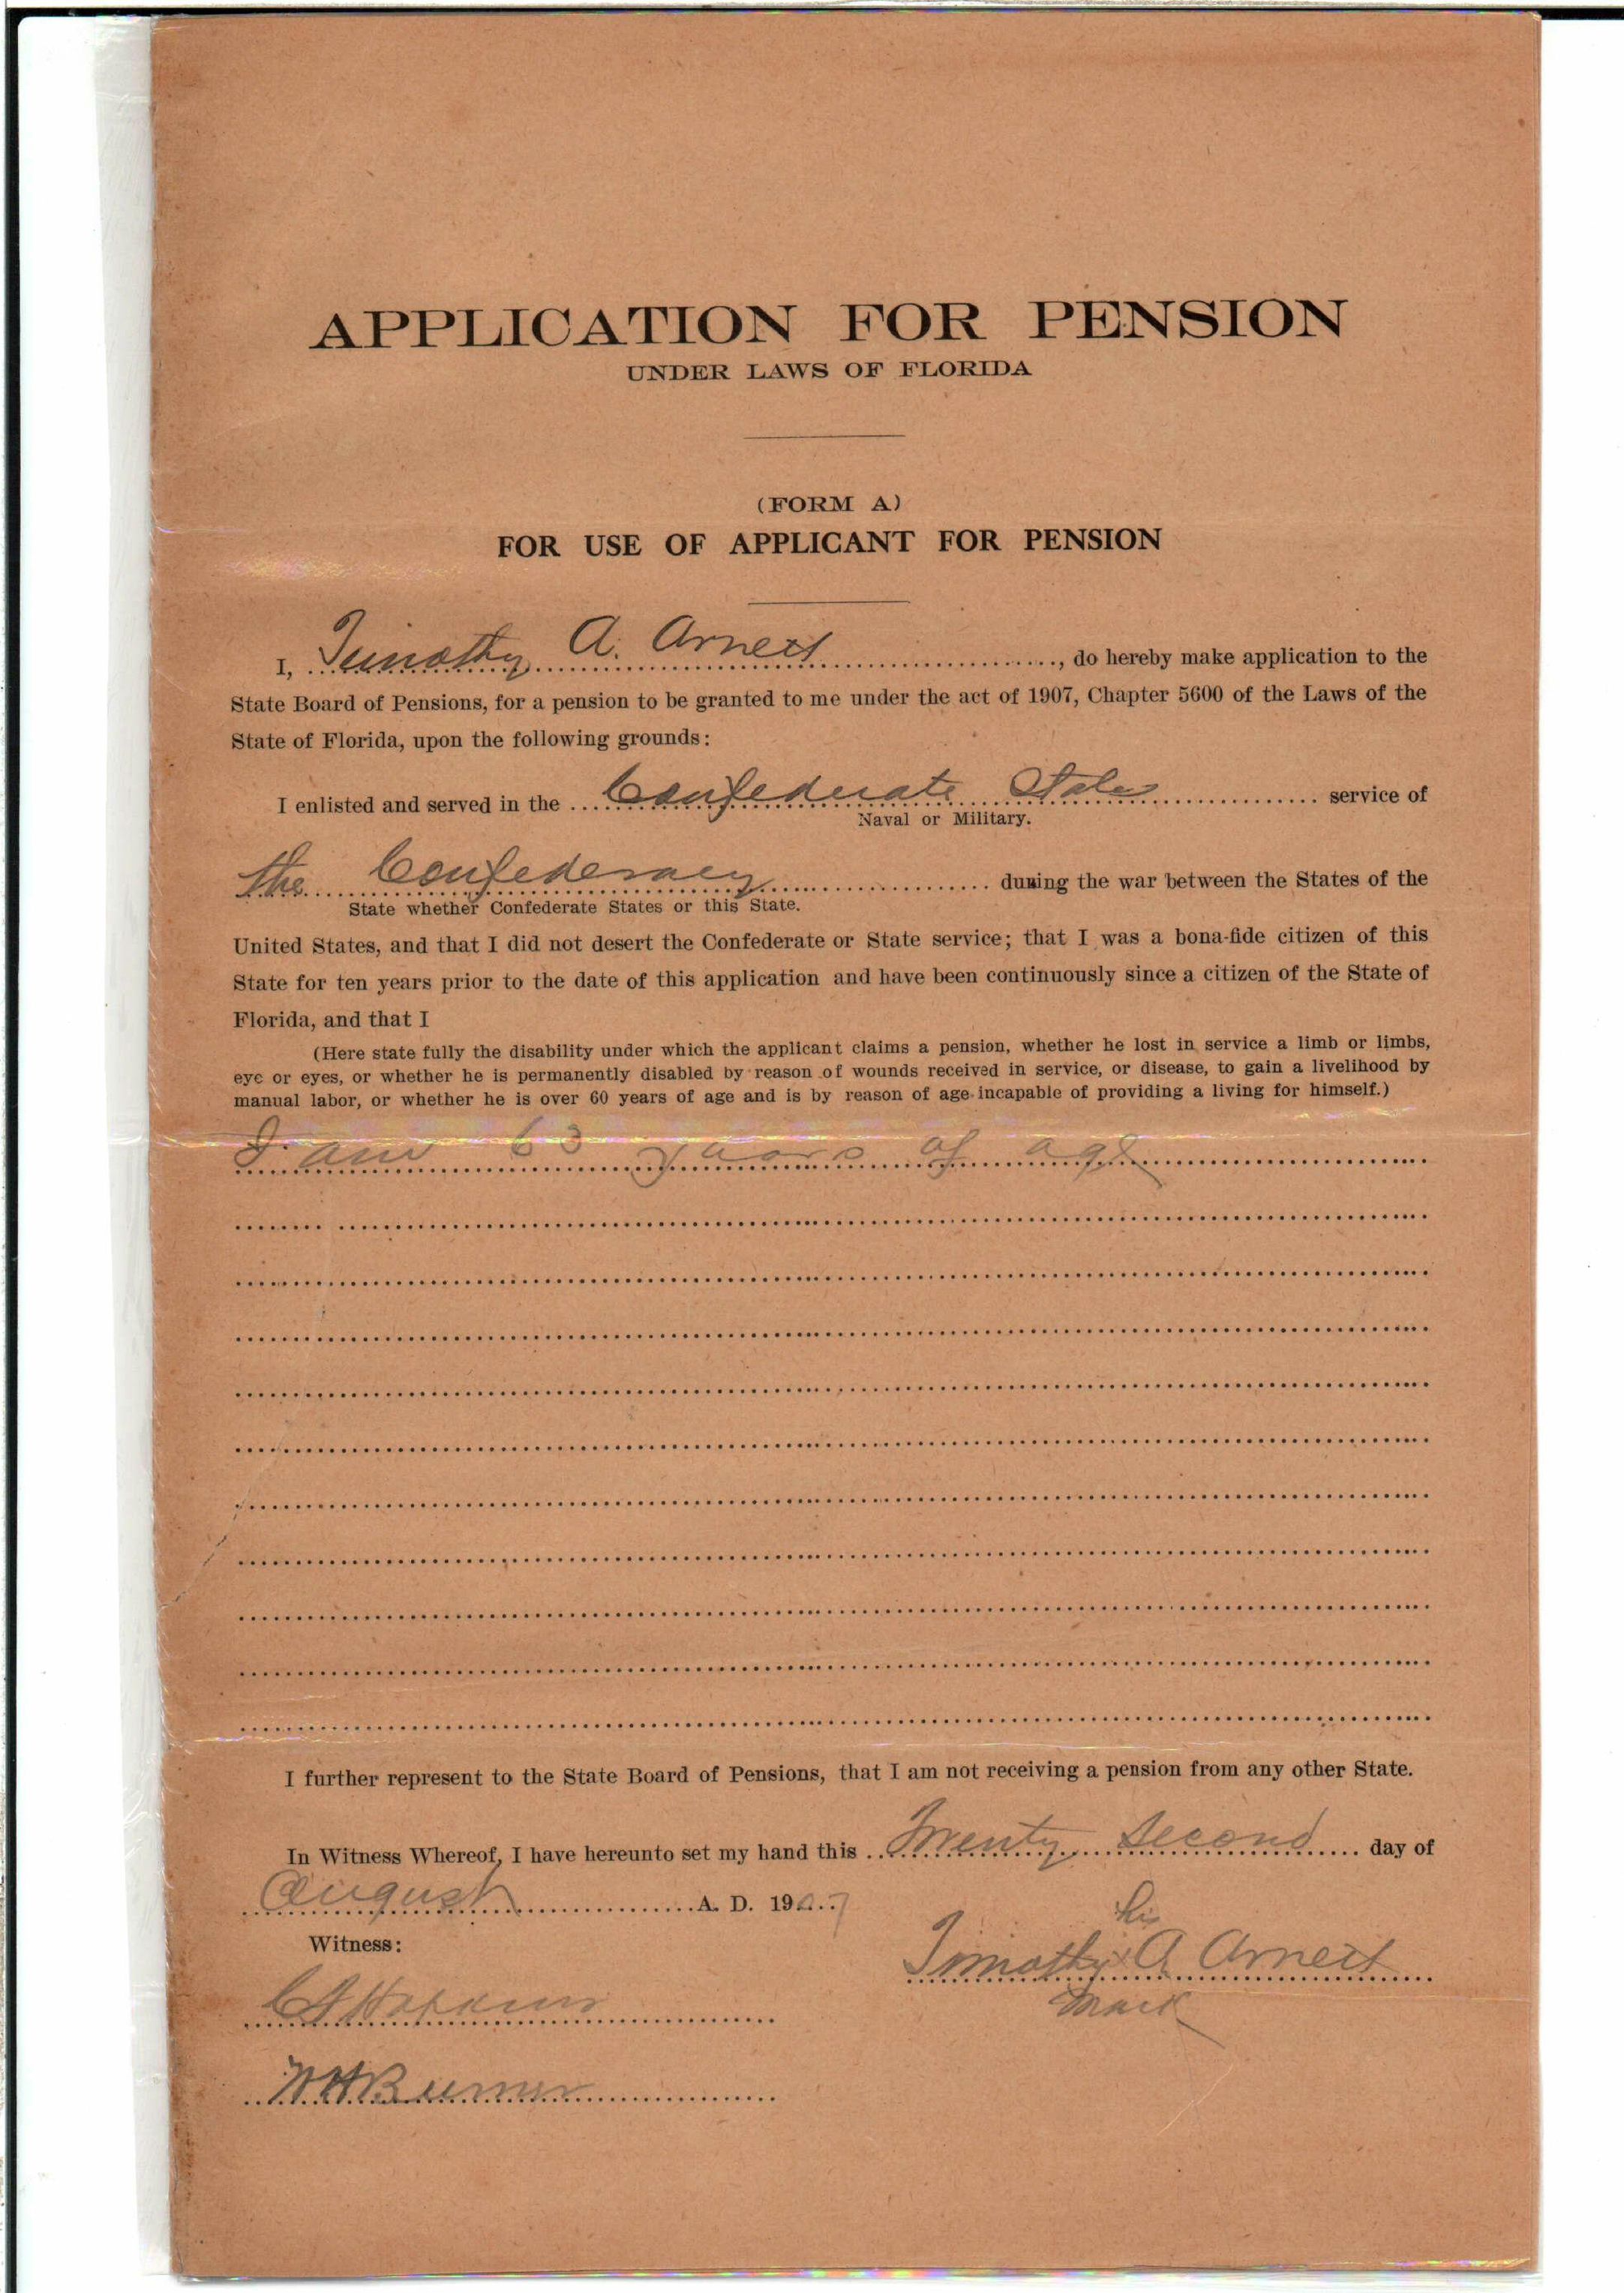 APPLICATION FOR PENSION
UNDER LAWS OF FLORIDA
(FORM A)
FOR USE OF APPLICANT FOR PENSION
I, Timothy A. Arnett, do hereby make application to the
State Board of Pensions, for a pension to be granted to me under the act of 1907, Chapter 5600 of the Laws of the
State of Florida, upon the following grounds:
I enlisted and served in the Confederate States service of
Naval or Military.
the Confederacy during the war between the States of the
State whether Confederate States or this State.
United States, and that I did not desert the Confederate or State service; that I was a bona-fide citizen of this
State for ten years prior to the date of this application and have been continuously since a citizen of the State of
Florida, and that I
(Here state fully the disability under which the applicant claims a pension, whether he lost in service a limb or limbs,
eye or eyes, or whether he is permanently disabled by reason of wounds received in service, or disease, to gain a livelihood by
manual labor, or whether he is over 60 years of age and is by reason of age incapable of providing a living for himself.)
I am 63 years of age
I further represent to the State Board of Pensions, that I am not receiving a pension from any other State.
In Witness Whereof, I have hereunto set my hand this Twenty Second day of
August A. D. 1907
his
Witness:
Timothy x A Arnett
mark